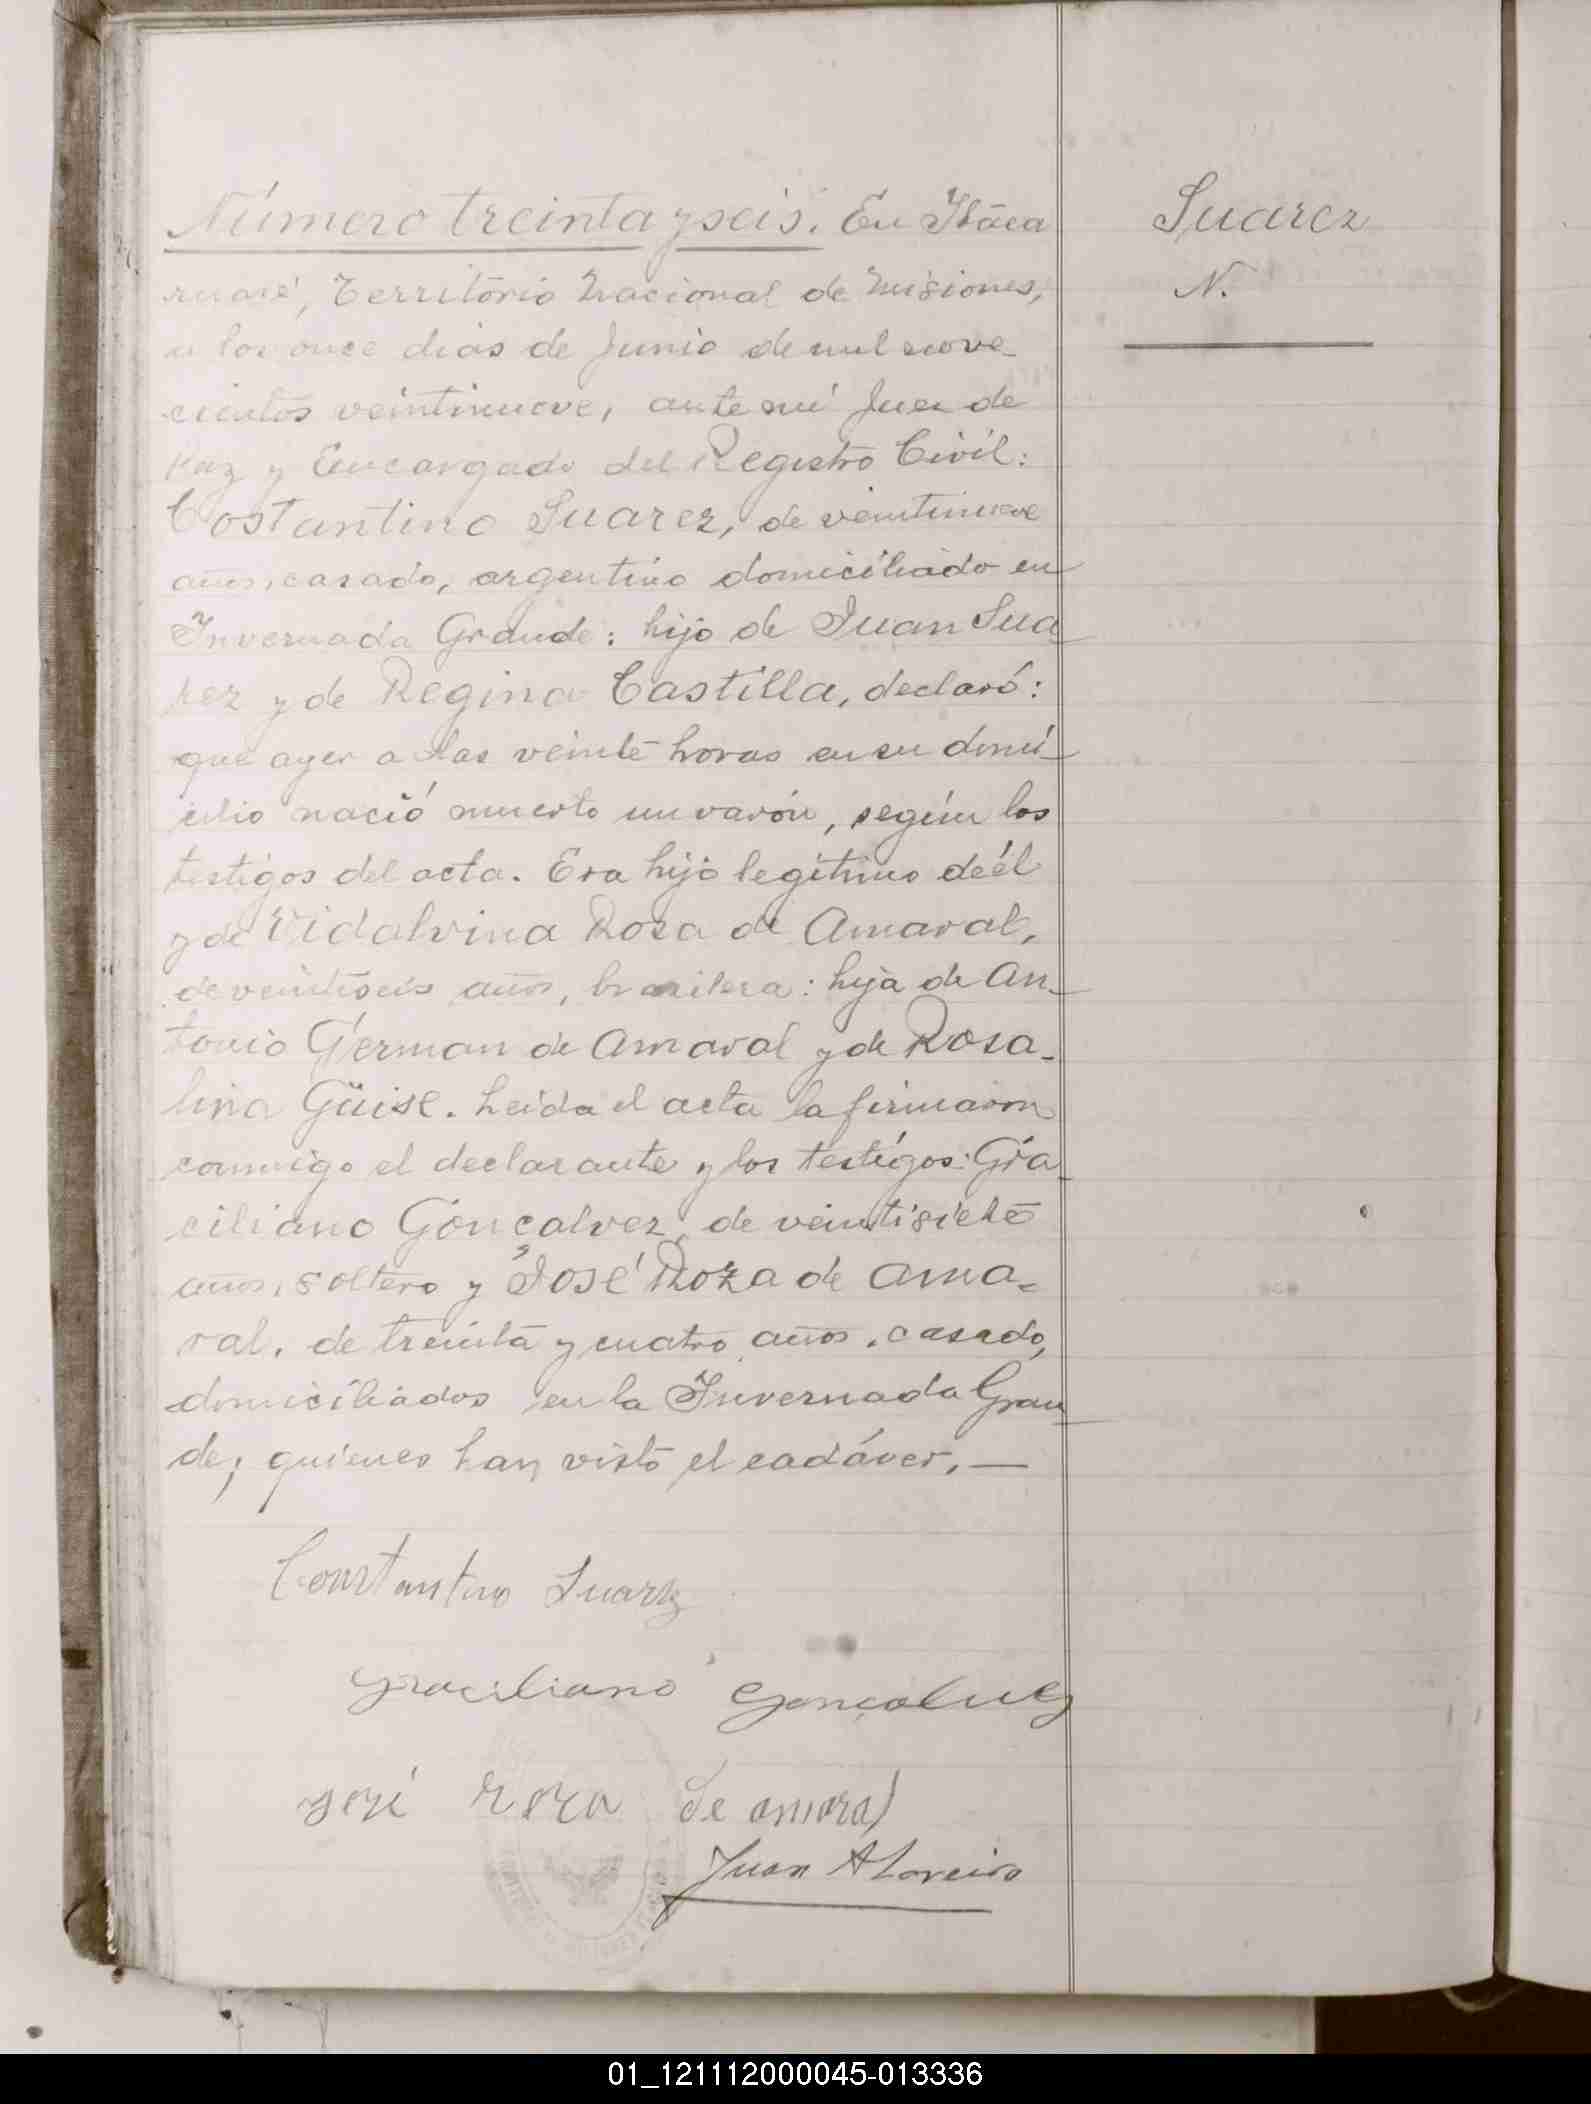 Número treinta y seis. En Itáca
ruaré, Territorio Nacional de Misiones,
a los once dias de Junio de mil nove_
cientos veintinueve, ante mi Juez de
Paz y Encargado del Registro Civil:
Costantino Suarez, de veintinueve
años, casado, argentino domiciliado en
Invernada Grande: hijo de Juan Sua
rez y de Regina Castilla, declaró:
que ayer a las veinte horas en su domi_
cilio nació muerto un varón, según los
testigos del acta. Era hijo legitimo de él
y de Vidalvina Rosa de Amaral,
de veintiseis años, brasilera: hija de An_
tonio German de Amaral y de Rosa_
lina Güise. Leida el acta la firmaron
conmigo el declarante y los testigos: Gra_
ciliano Gonçalvez, de veintisiete
años, soltero y José Roza de Ama_
ral, de treinta y cuatro años, casado,
domiciliados en la Invernada Gran
de; quienes han visto el cadáver. —
Constantino Suarez
Graciliano Gonçalvez
José Roza de amaral
Juan A Loreiro
Suarez
N.
01_121112000045-013336